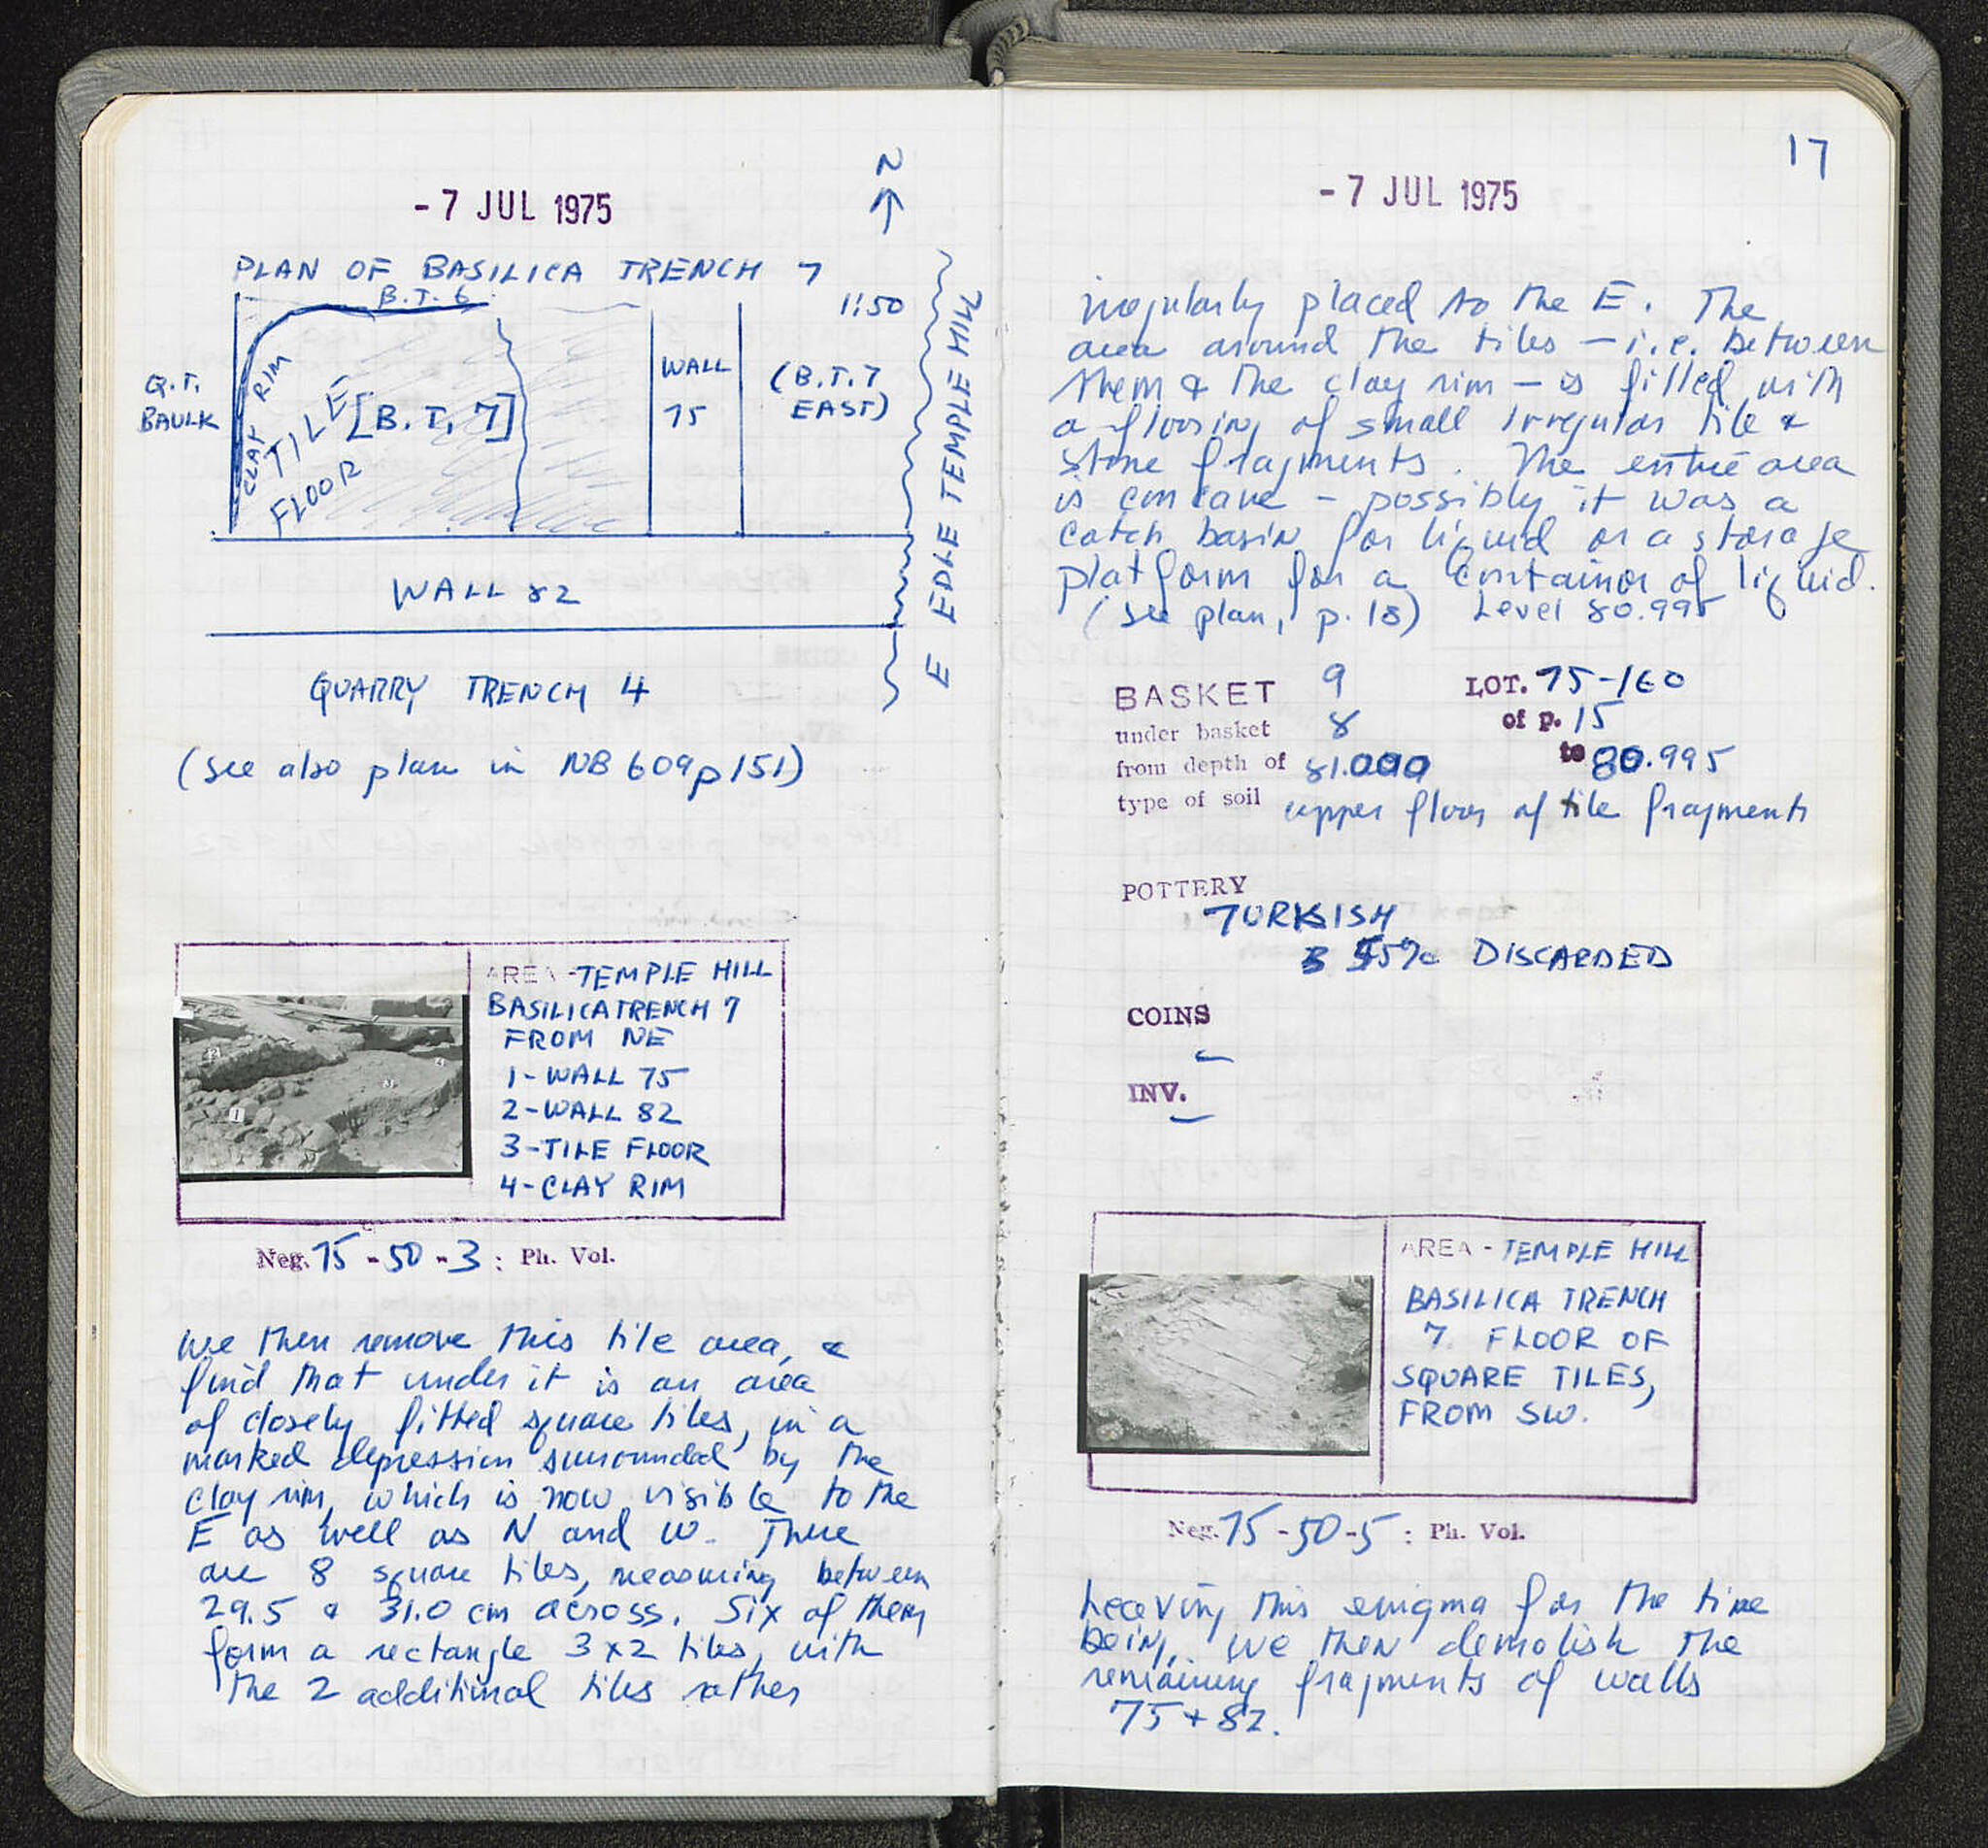 - 7 JUL 1975
N
PLAN OF BASILICA TRENCH 7
B.T. 6
1:50
Q.T.
BAULK
CLAY RIM
TILE
FLOOR
[B.T. 7]
WALL
75
(B.T. 7
EAST)
E EDGE TEMPLE HILL
WALL 82
QUARRY TRENCH 4
(see also plan in NB 609 p 151)
AREA - TEMPLE HILL
BASILICA TRENCH 7
FROM NE
1 - WALL 75
2 - WALL 82
3 - TILE FLOOR
4 - CLAY RIM
2
4
3
1
Neg. 75 - 50 - 3 : Ph. Vol.
We then remove this tile area, &
find that under it is an area
of closely fitted square tiles, in a
marked depression surrounded by the
clay rim, which is now visible to the
E as well as N and W. There
are 8 square tiles, measuring between
29.5 & 31.0 cm across. Six of them
form a rectangle 3x2 tiles, with
the 2 additional tiles rather
17
- 7 JUL 1975
irregularly placed to the E. The
area around the tiles - i.e. between
them & the clay rim - is filled with
a flooring of small irregular tile &
stone fragments. The entire area
is concave - possibly it was a
catch basin for liquid or a storage
platform for a container of liquid.
(see plan, p. 18) Level 80.995
BASKET 9 LOT. 75-160
under basket 8 of p. 15
from depth of 81.000 to 80.995
type of soil upper floor of tile fragments
POTTERY
TURKISH
55% DISCARDED
COINS
-
INV.
-
AREA - TEMPLE HILL
BASILICA TRENCH
7. FLOOR OF
SQUARE TILES,
FROM SW.
Neg. 75 - 50 - 5 : Ph. Vol.
Leaving this enigma for the time
being, we then demolish the
remaining fragments of walls
75 + 82.